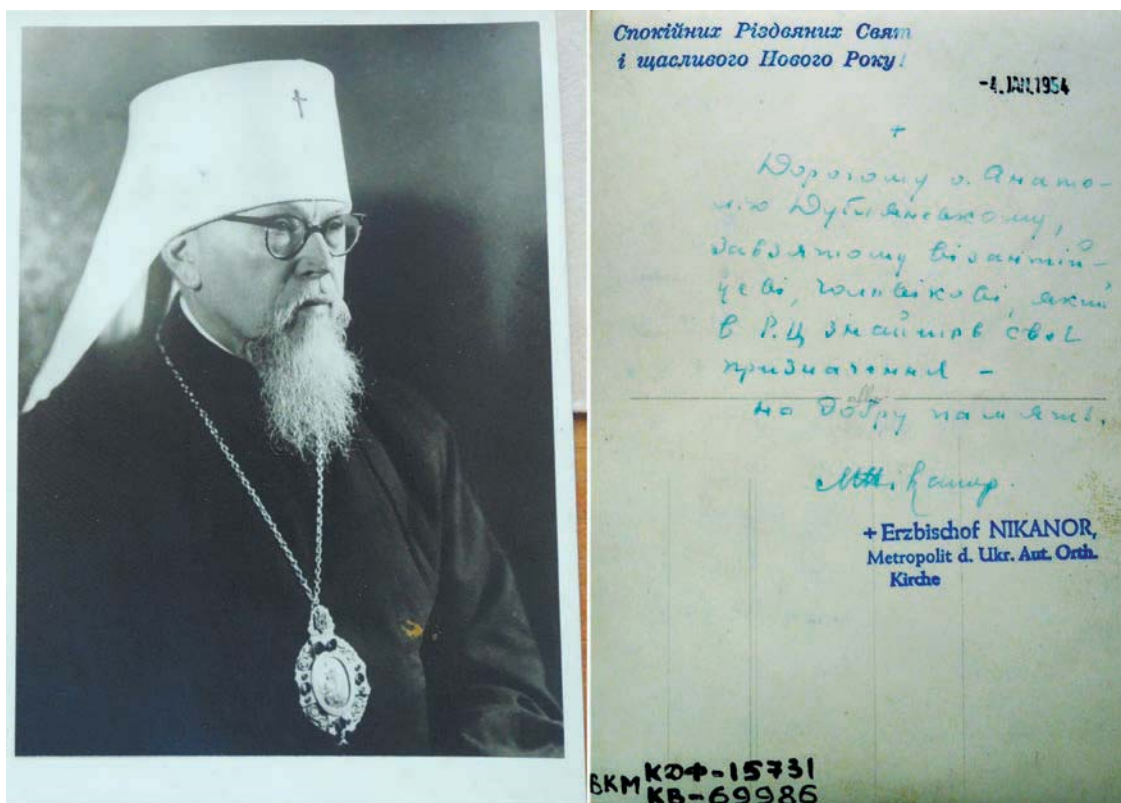 Спокійних Різдвяних Свят
і щасливого Нового Року!
-4. JAN. 1954
+
Дорогому о. Анато-
лію Дублянському,
завзятому візантій-
цеві, чоловікові, який
в Р.Ц знайшов своє
призначення -
на добру память.
+ Erzbischof NIKANOR,
Metropolit d. Ukr. Aut. Orth.
Kirche
ВКМ КДФ-15731
КВ-69986